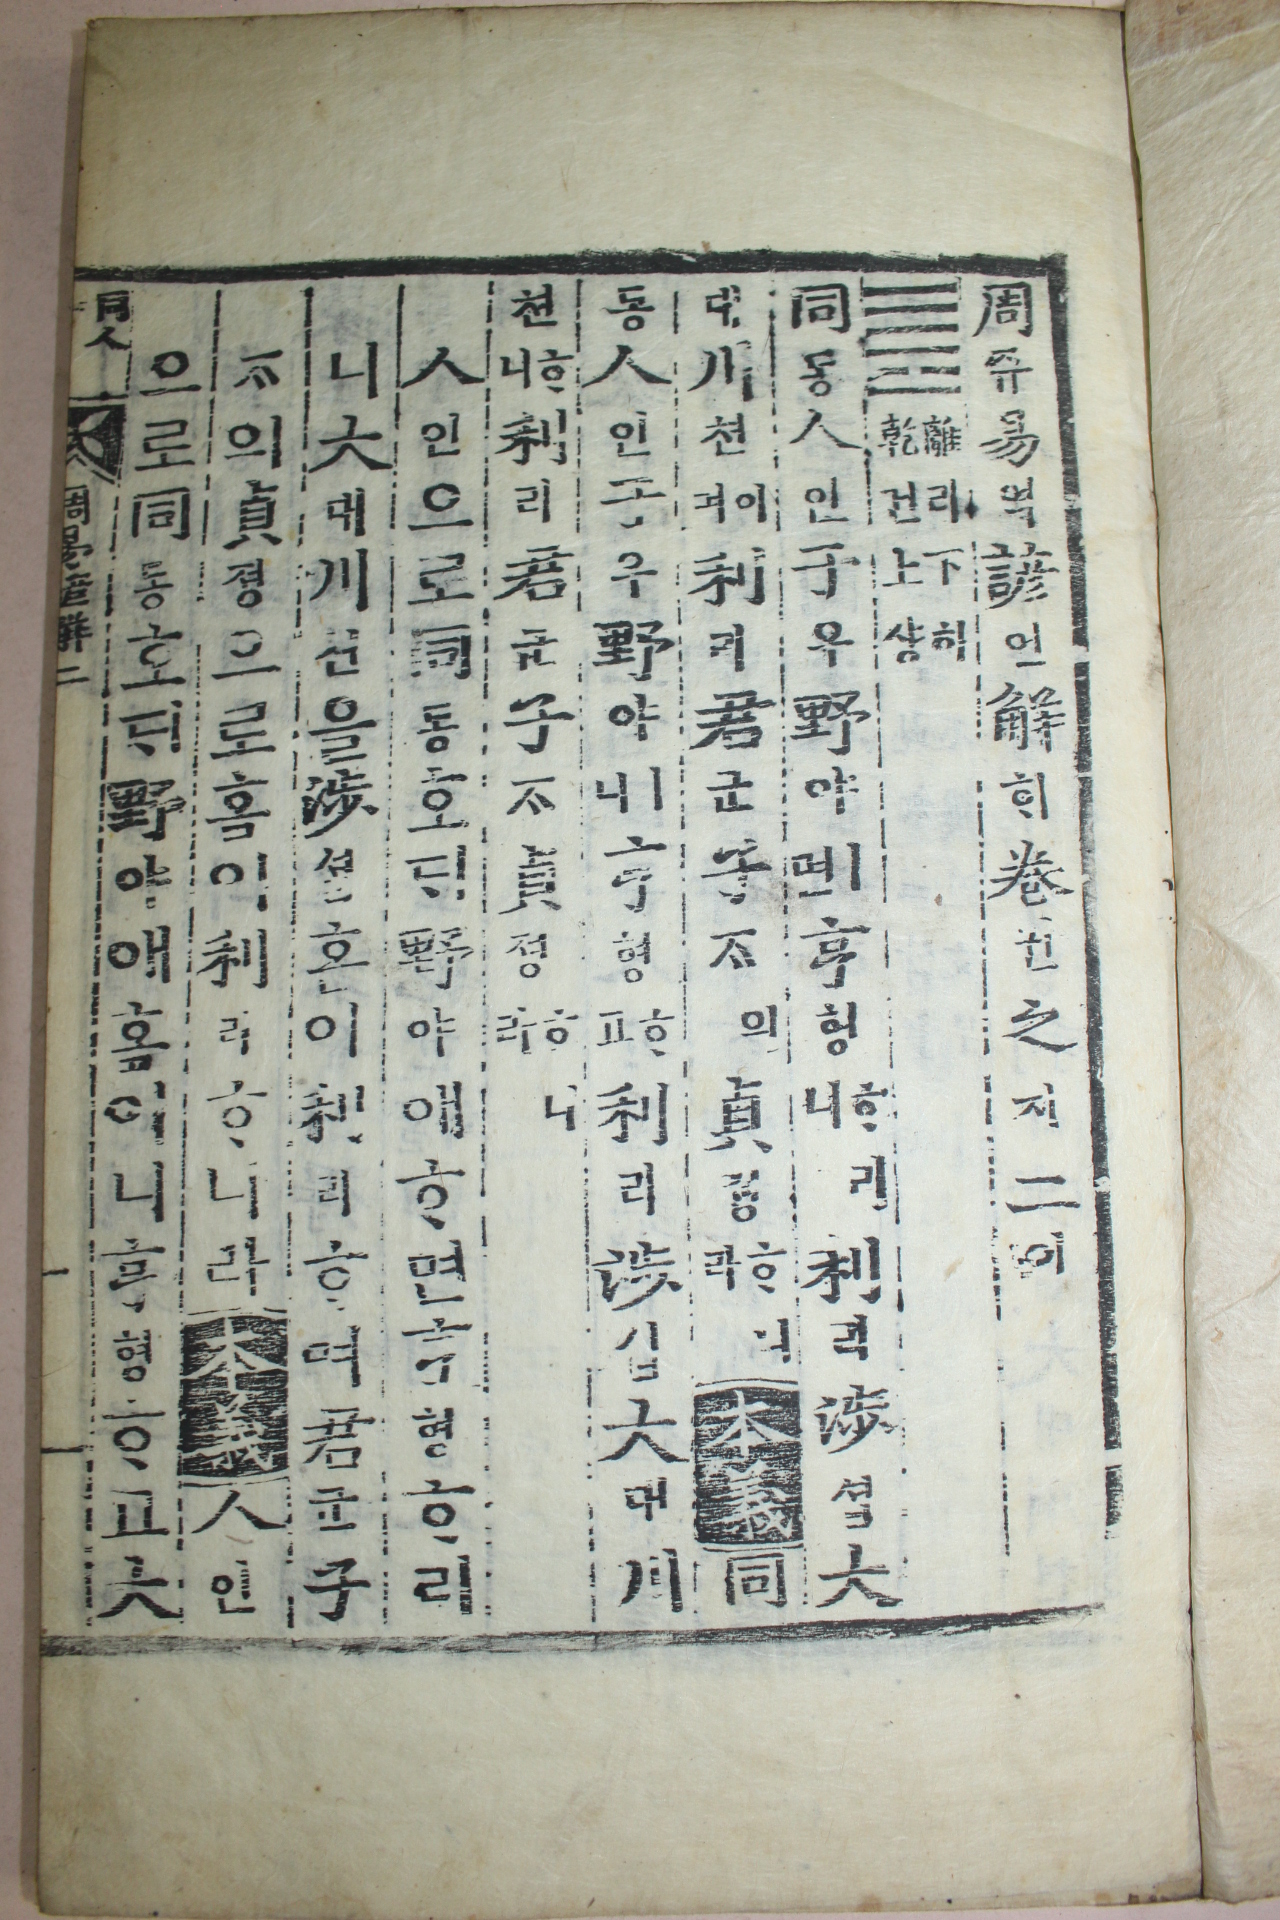 周쥬易역諺언解ᄒᆡ卷권之지二이
離리下하乾건上샹
同동人인于우野야면亨형ᄒᆞ니리利리涉셥大
대川쳔이며利리君군子ᄌᆞ의貞졍ᄒᆞ니라本義同
동人인于우野야ㅣ니亨형ᄒᆞ고利리涉셥大대川
쳔ᄒᆞ니利리君군子ᄌᆞ貞졍ᄒᆞ니라
人인으로同동호ᄃᆡ野야애ᄒᆞ면亨형ᄒᆞ리
니大대川쳔을涉셥홈이利리ᄒᆞ며君군子
ᄌᆞ의貞졍으로홈이利리ᄒᆞ니라本義人인
으로同동호ᄃᆡ野야애홈이니亨형ᄒᆞ고大
同人 周易諺解二